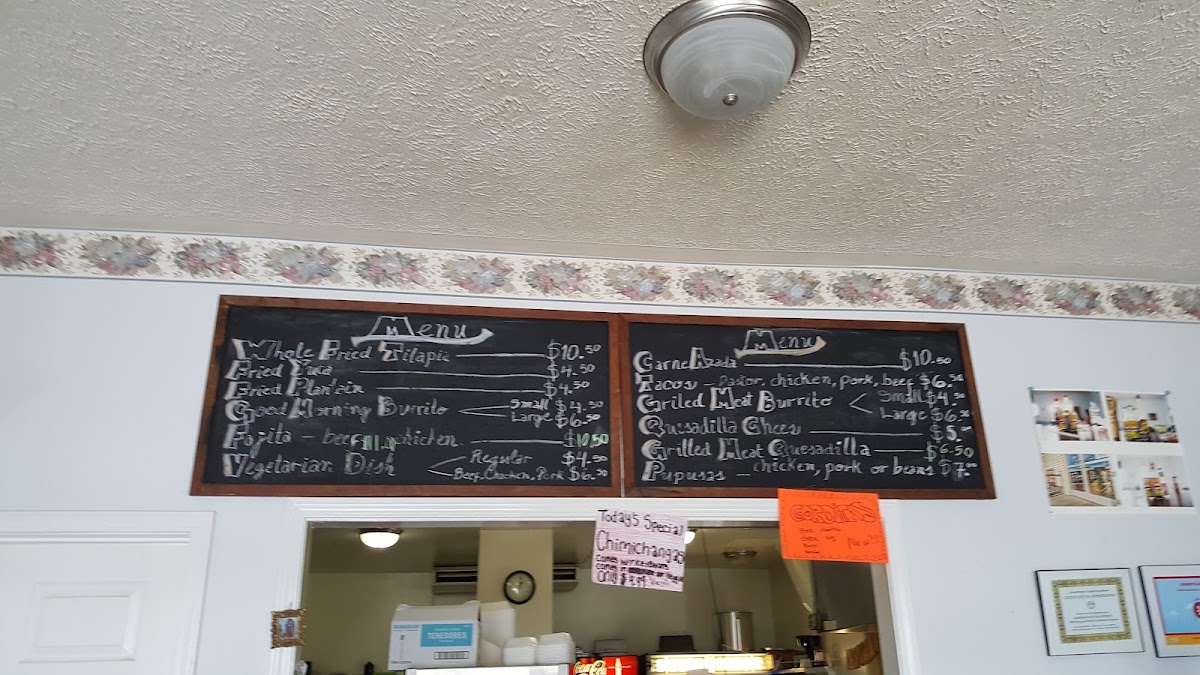 Menu
Whole Fried Tilapia $10.50
Fried Yuca $4.50
Fried Plantain $4.50
Good Morning Burrito Small $4.50
Large $6.50
Fajita - beef chicken $10.50
Vegetarian Dish Regular $4.50
Beef, Chacken, Pork $6.50
Menu
Carne Azada $10.50
Tacos - Pastor, chicken, pork, beef $6.50
Griled Meat Burrito Small $4.50
Large $6.50
Quesadilla Chees $5.
Grilled Meat Quesadilla $6.50
Pupusas - chicken, pork or beans $7.00
Today's Special
Chimichangas
Only
GORDITAS
TENEDORES
Coca-Cola